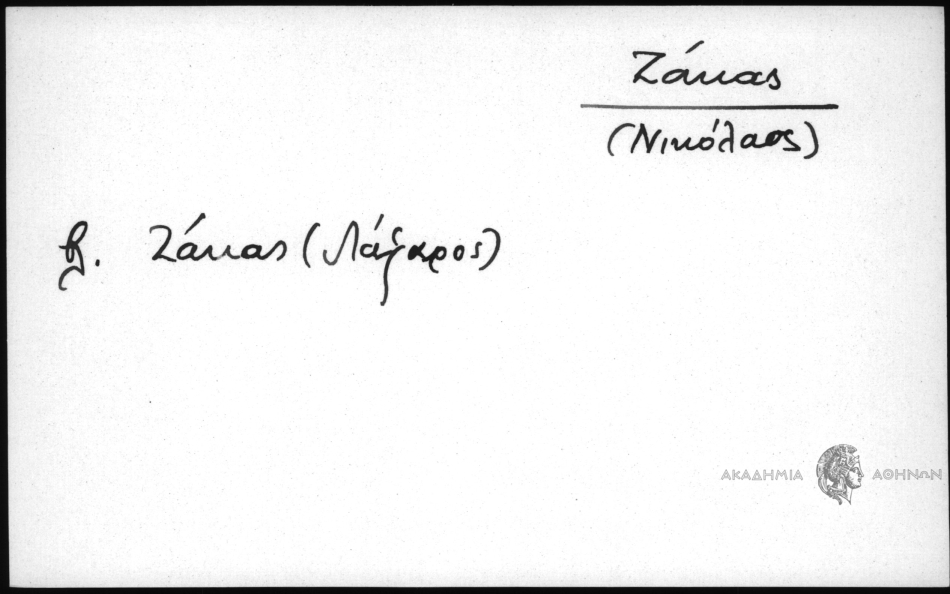 Ζάκας
(Νικόλαος)
βλ. Ζάκας (Λάζαρος)
ΑΚΑΔΗΜΙΑ ΑΘΗΝΩΝ